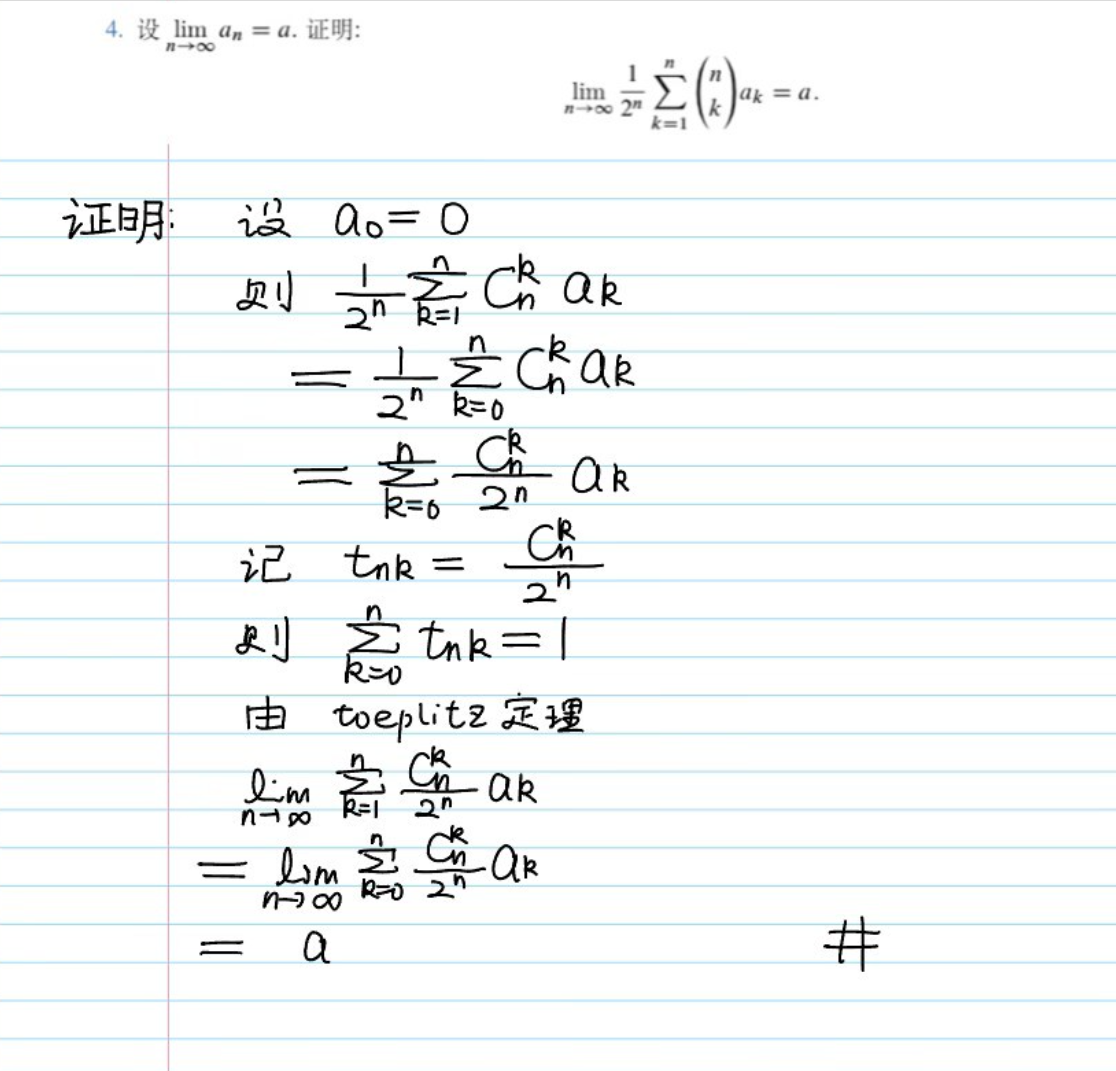 4. 设 $\lim_{n\to\infty} a_n = a$. 证明:
$\lim_{n\to\infty} \frac{1}{2^n} \sum_{k=1}^{n} \binom{n}{k} a_k = a.$
证明: 设 $a_0 = 0$
则 $\frac{1}{2^n} \sum_{k=1}^{n} C_n^k a_k$
$= \frac{1}{2^n} \sum_{k=0}^{n} C_n^k a_k$
$= \sum_{k=0}^{n} \frac{C_n^k}{2^n} a_k$
记 $t_{nk} = \frac{C_n^k}{2^n}$
则 $\sum_{k=0}^{n} t_{nk} = 1$
由 toeplitz 定理
$\lim_{n\to\infty} \sum_{k=1}^{n} \frac{C_n^k}{2^n} a_k$
$= \lim_{n\to\infty} \sum_{k=0}^{n} \frac{C_n^k}{2^n} a_k$
$= a$ #